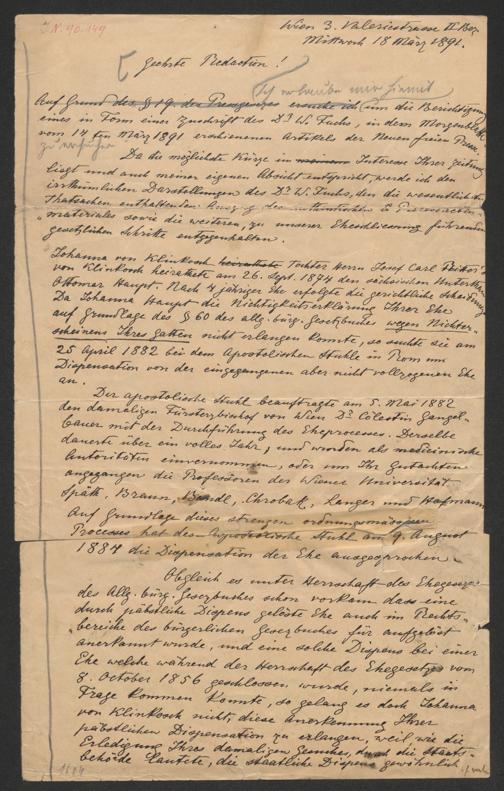 I.N. 90.149
Wien 3. Valeriestrasse II Bez.
Mittwoch 18 März 1891.
Geehrte Redaction!
Ich erlaube mir hiemit
Auf Grund des § 19. des Pressgesetzes ersuche ich um die Berichtigung
eines in Form einer Zuschrift des Dr. W. Fuchs, in dem Morgenblatte
vom 14ten März 1891 erschienenen Artikels der Neuen freien Presse.
zu ersuchen
Da die möglichste Kürze im Interesse Ihrer Zeitung
liegt und auch meiner eigenen Absicht entspricht, werde ich den
irrthümlichen Darstellungen des Dr. W. Fuchs, den die wesentlichsten
Thatsachen enthaltenden Auszug des authentischen
materiales sowie die weiteren, zu unserer Eheschliessung führenden
gesetzlichen Schritte entgegenhalten.
Johanna von Klinkosch heiratete Tochter Herrn Josef Carl Ritter
von Klinkosch heiratete am 26. Sept. 1874 den sächsischen
Ottomar Haupt. Nach 4 jähriger Ehe erfolgte die gerichtliche Scheidung
Da Johanna Haupt die Nichtigkeitserklärung Ihrer Ehe
auf Grundlage des § 60 des allg. bürg. Gesetzbuches wegen Nichter-
scheinens Ihres Gatten nicht erlangen konnte, so suchte sie am
25 April 1882 bei dem Apostolischen Stuhle in Rom um
Dispensation von der eingegangenen aber nicht vollzogenen Ehe
an.
Der apostolische Stuhl beauftragte am 5. Mai 1882
den damaligen Fürsterzbischof von Wien Dr. Cölestin Gangel-
bauer mit der Durchführung des Eheprocesses. Derselbe
dauerte über ein volles Jahr, und wurden als medicinische
Autoritäten einvernommen, oder um Ihr Gutachten
angegangen die Professoren der Wiener Universität
Späth, Braun, Bandl, Chrobak, Langer und Hofmann
Auf Grundlage dieses strengen ordnungsmässigen
Processes hat der Apostolische Stuhl am 9. August
1884 die Dispensation der Ehe ausgesprochen.
Obgleich es unter Herrschaft des Ehegesetzes
des Allg. bürg. Gesetzbuches schon vorkam dass eine
durch päbstliche Dispens gelöste Ehe auch im Rechts-
bereiche des bürgerlichen Gesetzbuches für aufgelöst
anerkannt wurde, und eine solche Dispens bei einer
Ehe welche während der Herrschaft des Ehegesetzes vom
8. October 1856 geschlossen wurde, niemals in
Frage kommen konnte, so gelang es doch Johanna
von Klinkosch nicht, diese Anerkennung Ihrer
päbstlichen Dispensation zu erlangen, weil wie die
Erledigung Ihres damaligen Gesuches, durch die Staats-
behörde lautete, die staatliche Dispens gewöhnlich
1884